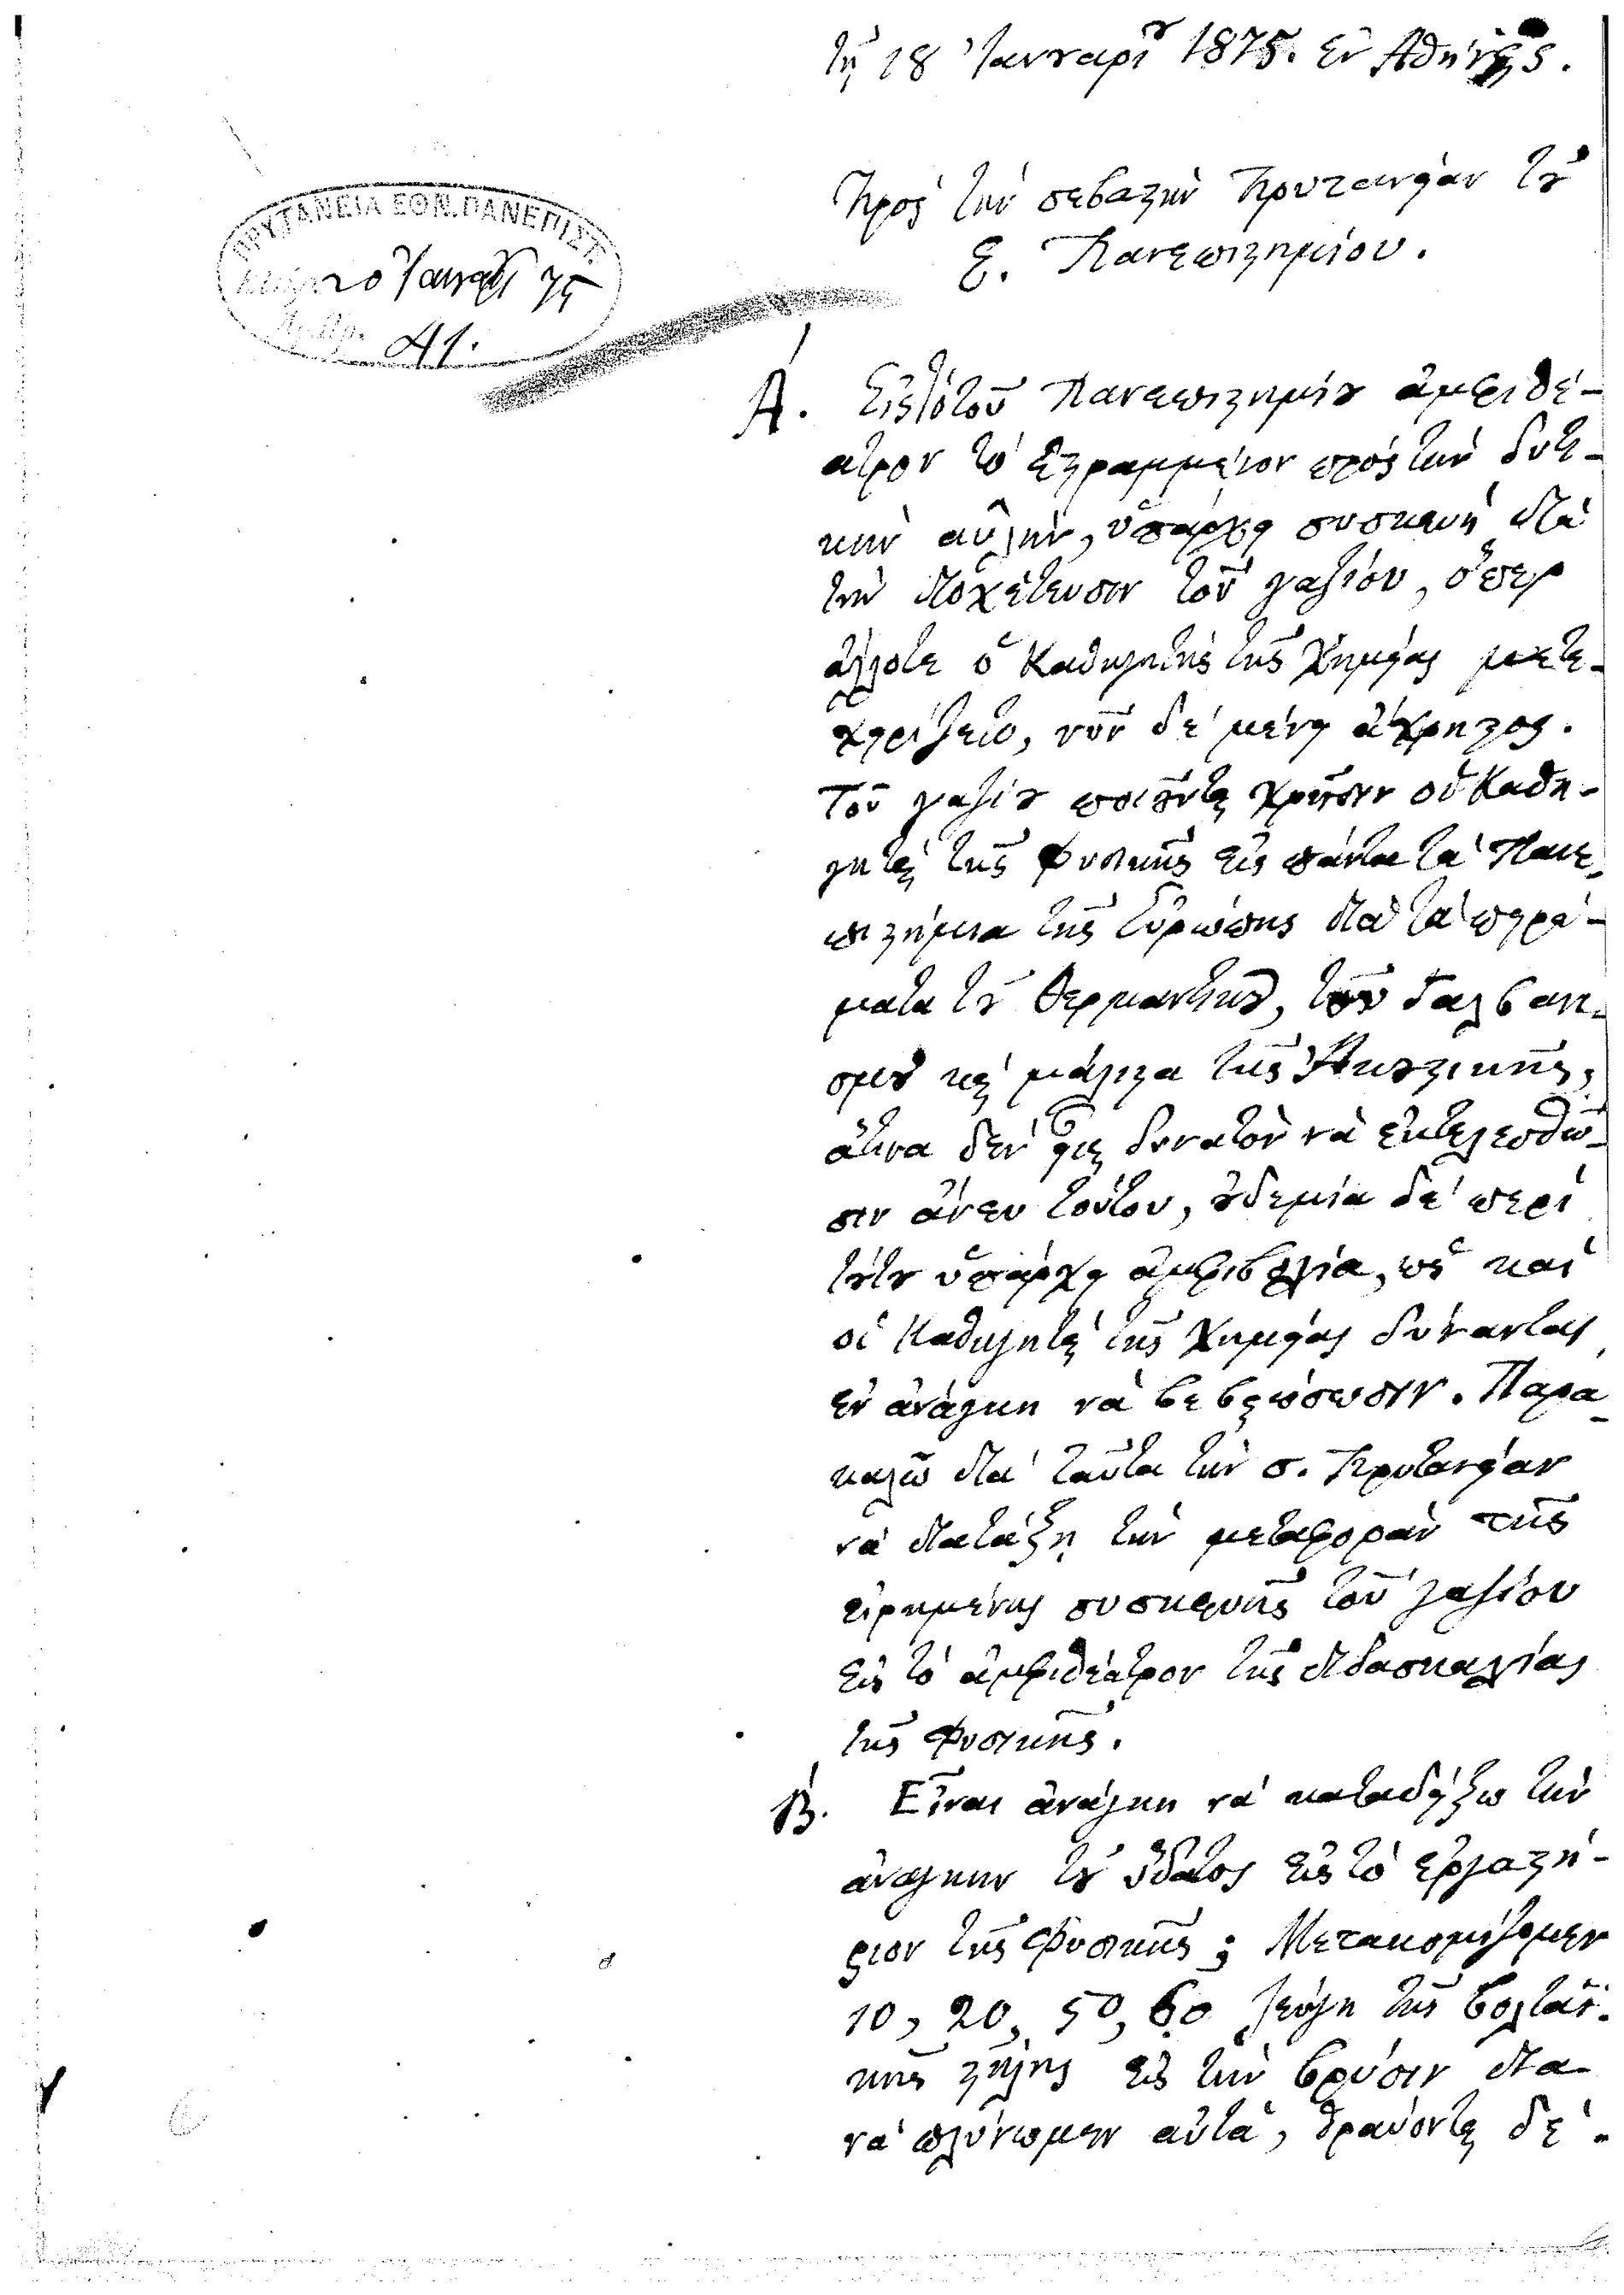 τῇ 18 Ἰανουαρίου 1875. Ἐν Ἀθήναις.
Πρὸς τὴν σεβαστὴν Πρυτανείαν τοῦ
Ε. Πανεπιστημίου.
ΠΡΥΤΑΝΕΙΑ ΕΘΝ. ΠΑΝΕΠΙΣΤ.
20 Ἰανουαρ 75
Αρ. Πρ. 41.
Α. Εἰς τὸ τοῦ Πανεπιστημίου ἀμφιθέ-
ατρον τὸ ἐστραμμένον πρὸς τὴν δυτι-
κὴν αὐλὴν, ὑπάρχει συσκευὴ διὰ
τὴν διοχέτευσιν τοῦ γαζίου, ὅπερ
ἄλλοτε ὁ Καθηγητὴς τῆς Χημείας μετε-
χειρίζετο, νῦν δὲ μένει ἄχρηστος.
Τοῦ γαζίου ποιοῦνται χρῆσιν οἱ Καθη-
γηταὶ τῆς Φυσικῆς εἰς πάντα τὰ Πανε-
πιστήμια τῆς Εὐρώπης διὰ τὰ πειρά-
ματα τοῦ θερμαντικοῦ, τοῦ Γαλβανι-
σμοῦ καὶ μάλιστα τῆς Ἀκουστικῆς,
ἅτινα δὲν εἶναι δυνατὸν νὰ ἐκτελεσθῶ-
σιν ἄνευ τούτου, οὐδεμία δὲ περὶ
τούτου ὑπάρχει ἀμφιβολία, ὡς καὶ
οἱ Καθηγηταὶ τῆς Χημείας δύνανται
ἐν ἀνάγκῃ νὰ βεβαιώσωσιν. Παρα-
καλῶ διὰ ταῦτα τὴν σ. Πρυτανείαν
νὰ διατάξῃ τὴν μεταφορὰν τῆς
εἰρημένης συσκευῆς τοῦ γαζίου
εἰς τὸ ἀμφιθέατρον τῆς διδασκαλίας
τῆς Φυσικῆς.
Β. Εἶναι ἀνάγκη νὰ καταδείξω τὴν
ἀνάγκην τοῦ ὕδατος εἰς τὸ ἐργαστή-
ριον τῆς Φυσικῆς; Μετακομίζομεν
10, 20, 50, 60 ζεύγη τῆς βολταϊ-
κῆς στήλης εἰς τὴν βρύσιν δια
νὰ πλύνωμεν αὐτὰ, θραύονται δὲ